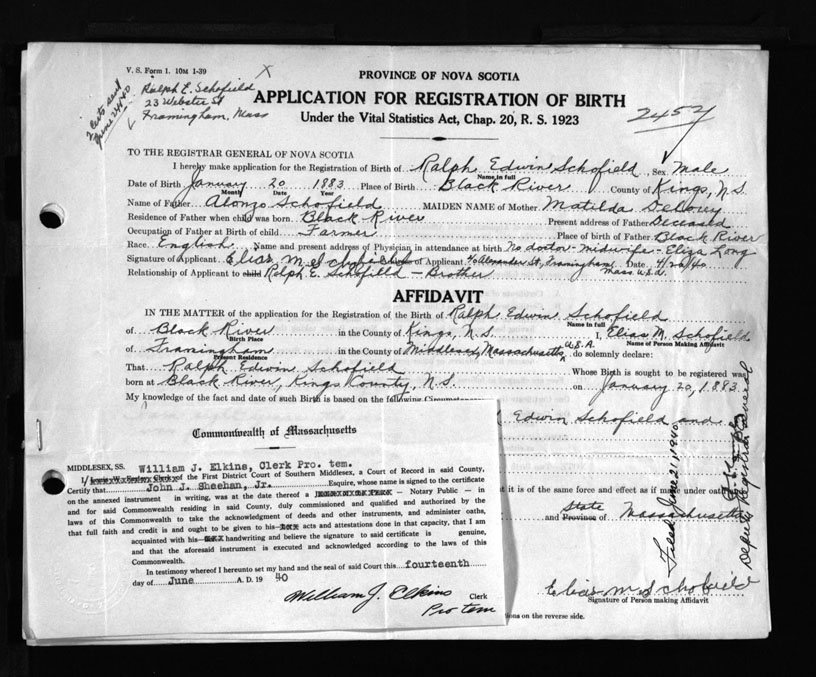 V. S. Form 1. 10M 1-39
X
Ralph E. Schofield
23 Webster St
Framingham, Mass
June 24/40
PROVINCE OF NOVA SCOTIA
APPLICATION FOR REGISTRATION OF BIRTH
Under the Vital Statistics Act, Chap. 20, R. S. 1923
2452
TO THE REGISTRAR GENERAL OF NOVA SCOTIA
I hereby make application for the Registration of Birth of Ralph Edwin Schofield, Sex Male
Name in full
Date of Birth January 20 1883 Place of Birth Black River County of Kings, N.S.
Month Date Year
Name of Father Alonzo Schofield MAIDEN NAME of Mother Matilda
Residence of Father when child was born Black River Present address of Father Deceased
Occupation of Father at Birth of child Farmer Place of birth of Father Black River
Race English Name and present address of Physician in attendance at birth No doctor - midwife - Eliza Long
Signature of Applicant Elias M Schofield of Applicant 40 Alexander St, Framingham Date
Mass U.S.A.
Relationship of Applicant to child Ralph E. Schofield - Brother
AFFIDAVIT
IN THE MATTER of the application for the Registration of the Birth of Ralph Edwin Schofield
Name in full
of Black River in the County of Kings, N.S. I, Elias M. Schofield
Birth Place Name of Person Making Affidavit
of Framingham in the County of Middlesex, Massachusetts U.S.A. do solemnly declare:
Present Residence
That Ralph Edwin Schofield Whose Birth is sought to be registered was
born at Black River, Kings County, N.S. on January 20, 1883
My knowledge of the fact and date of such Birth is based on the following Circumstances
Edwin Schofield and
Commonwealth of Massachusetts
MIDDLESEX, SS. William J. Elkins, Clerk Pro. tem.
I, of the First District Court of Southern Middlesex, a Court of Record in said County,
Certify that John J. Sheehan, Jr. Esquire, whose name is signed to the certificate
on the annexed instrument in writing, was at the date thereof a — Notary Public — in
and for said Commonwealth residing in said County, duly commissioned and qualified and authorized by the
laws of this Commonwealth to take the acknowledgment of deeds and other instruments, and administer oaths,
that full faith and credit is and ought to be given to his acts and attestations done in that capacity, that I am
acquainted with his handwriting and believe the signature to said certificate is genuine,
and that the aforesaid instrument is executed and acknowledged according to the laws of this
Commonwealth.
In testimony whereof I hereunto set my hand and the seal of said Court this fourteenth
day of June A. D. 19 40
William J. Elkins Clerk
Pro tem
it is of the same force and effect as if made under oath
State
and Province of Massachusetts
Filed June 21, 1940
Deputy Registrar General
Elias M Schofield
Signature of Person making Affidavit
tions on the reverse side.